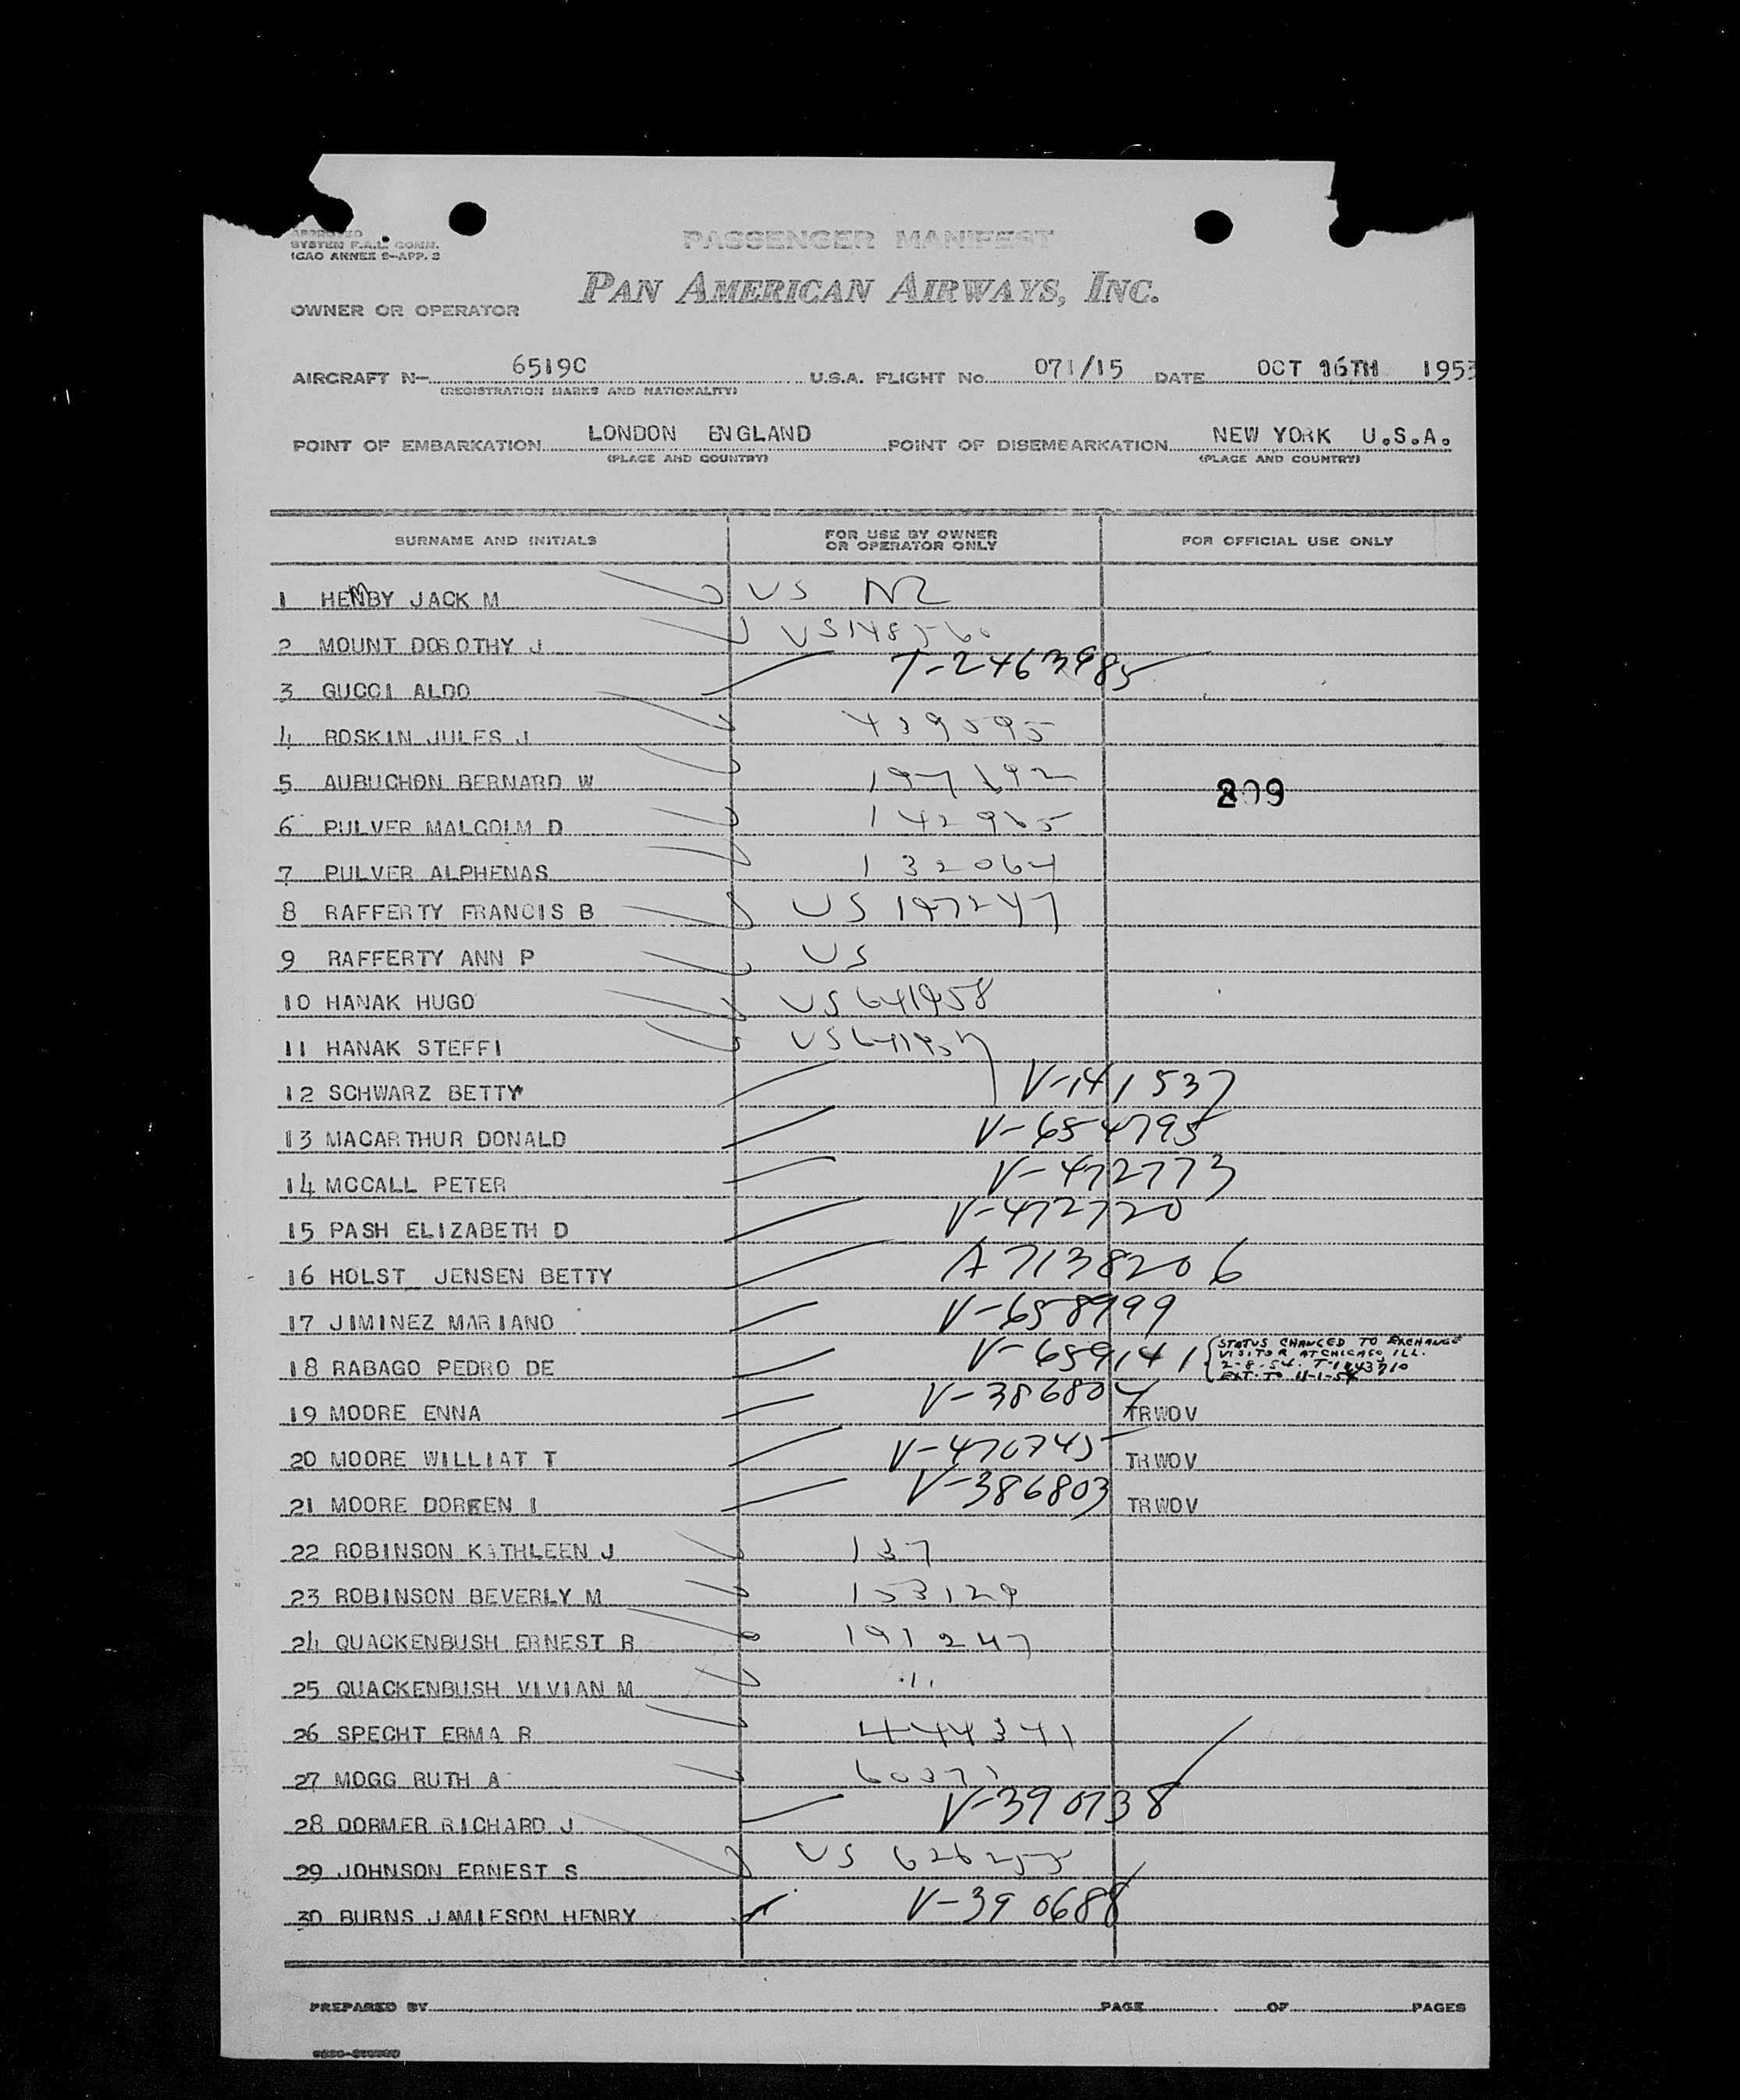 APPROVED
SYSTEM F.A.L. COMM.
ICAO ANNEX 9-APP. 3
PASSENGER MANIFEST
PAN AMERICAN AIRWAYS, INC.
OWNER OR OPERATOR
AIRCRAFT N- 6519C U.S.A. FLIGHT No. 071/15 DATE OCT 16TH 1953
(REGISTRATION MARKS AND NATIONALITY)
POINT OF EMBARKATION LONDON ENGLAND POINT OF DISEMBARKATION NEW YORK U.S.A.
(PLACE AND COUNTRY) (PLACE AND COUNTRY)
SURNAME AND INITIALS FOR USE BY OWNER OR OPERATOR ONLY FOR OFFICIAL USE ONLY
1 HEMBY JACK M US
2 MOUNT DOROTHY J
3 GUCCI ALDO T-2463985
4 ROSKIN JULES J 439595
5 AUBUCHON BERNARD W 197192 209
6 PULVER MALCOLM D 142965
7 PULVER ALPHENAS 132064
8 RAFFERTY FRANCIS B US 197247
9 RAFFERTY ANN P US
10 HANAK HUGO US 641958
11 HANAK STEFFI US 641957
12 SCHWARZ BETTY V-141537
13 MACARTHUR DONALD V-654795
14 MCCALL PETER V-472773
15 PASH ELIZABETH D V-472720
16 HOLST JENSEN BETTY A7138206
17 JIMINEZ MARIANO V-658999
18 RABAGO PEDRO DE V-659141 STATUS CHANGED TO EXCHANGE
VISITOR AT CHICAGO ILL.
2-8-54. T-1843710
EXT. TO 11-1-54
19 MOORE ENNA V-386804 TRWOV
20 MOORE WILLIAT T V-470745 TRWOV
21 MOORE DOREEN I V-386803 TRWOV
22 ROBINSON KATHLEEN J 137
23 ROBINSON BEVERLY M 153129
24 QUACKENBUSH ERNEST R 197247
25 QUACKENBUSH VIVIAN M
26 SPECHT ERMA R 444341
27 MOGG RUTH A
28 DORMER RICHARD J V-390738
29 JOHNSON ERNEST S US 626255
30 BURNS JAMIESON HENRY V-390688
PREPARED BY PAGE OF PAGES